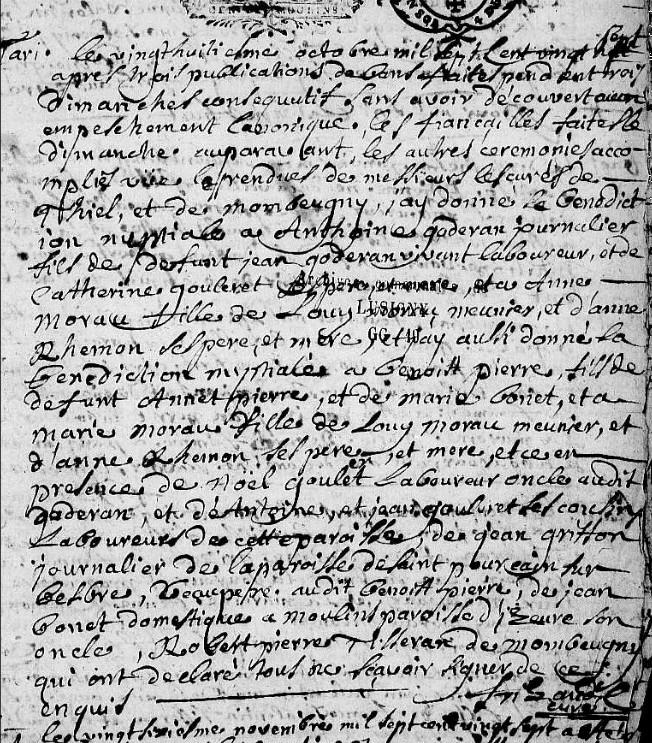 Mari. le vingthuitiesme octobre mil sept cent vingt sept
apres trois publications de bans faites pendent trois
dimanches consequutif sans avoir découvert aucun
empeschement canonique, les fiancailles faites le
dimanche auparavant, les autres ceremonies acco-
mplies vüe les rendues de messieurs les curés de
thiel, et de mombeugny, j'ay donné la benedict
ion nuptiale a Anthoine gaderan journalier
fils de defunt jean gaderan vivant laboureur, et de
Catherine gouleret ses pere, et mere, et a Anne
LUSIGNY
morau fille de Louy morau meunier, et d'anne
GG
Rhemon ses pere, et mere, et j'ay aussi donné la
benediction nuptiale a benoist pierre, fils de
defunt Annet pierre, et de marie bonet, et a
marie morau fille de Louy morau meunier, et
d'anne Rhemon, ses pere, et mere, et ce en
presence de Noël goulet Laboureur oncle audit
gaderan, et d'Antoine, et jean gouleret ses cousins
Laboureurs de cette paroisse, de jean griffon
journalier de la paroisse de saint pourcain sur
besbre, beaupere audit benoist pierre, de jean
bonet domestique a moulins paroisse d'izeure son
oncle, Robert pierre tisseran de mombeugny
qui ont declaré tous ne scavoir signer de ce
enquis
curé
le vingt sixiesme novembre mil sept cent vingt sept